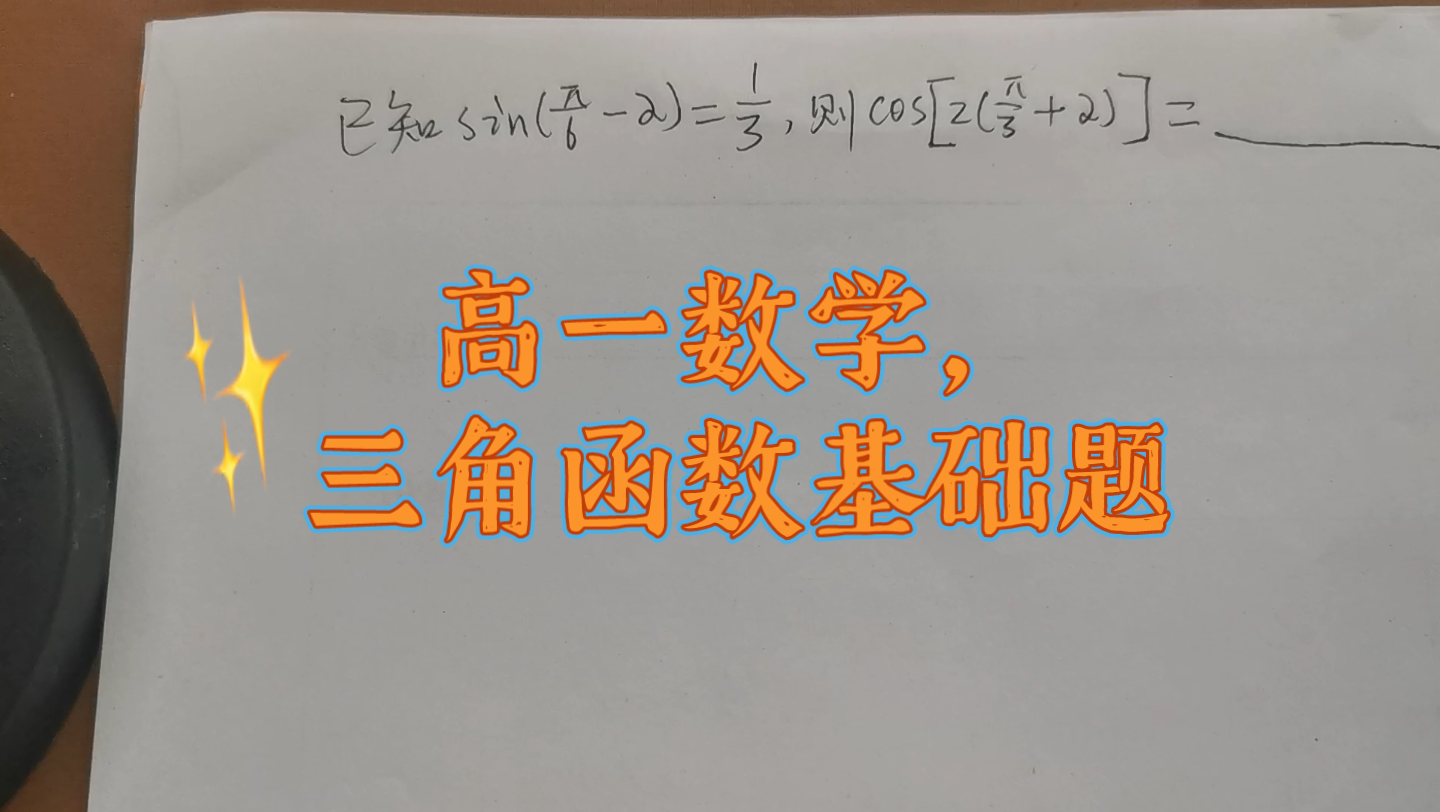 已知sin(π/6-α)=1/3,则cos[2(π/3+α)]=
高一数学,
三角函数基础题